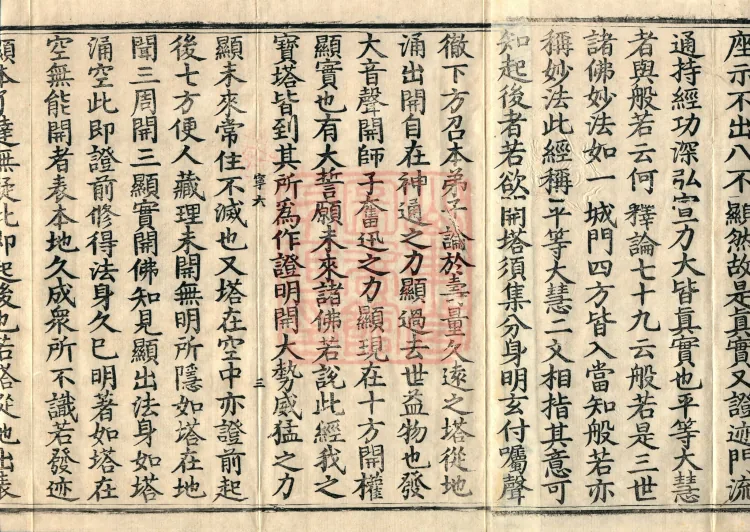 座示不出八不顯然故是真實又證迹門流
通持經功深弘宣力大皆眞實也平等大慧
者與般若云何釋論七十九云般若是三世
諸佛妙法如一城門四方皆入當知般若亦
稱妙法此經稱平等大慧二文相指其意可
知起後者若欲開塔須集分身明玄付囑聲
徹下方召本弟子論於壽量久遠之塔從地
涌出開自在神通之力顯過去世益物也發
大音聲開師子奮迅之力顯現在十方開權
顯實也有大誓願未來諸佛若說此經我之
寶塔皆到其所爲作證明開大勢威猛之力
寧六
三
顯未來常住不滅也又塔在空中亦證前起
後七方便人藏理未開無明所隱如塔在地
聞三周開三顯實開佛知見顯出法身如塔
涌空此即證前修得法身久已明著如塔在
空無能開者表本地久成衆所不識若發迹
顯本了達無疑此即起後也若塔從地出表